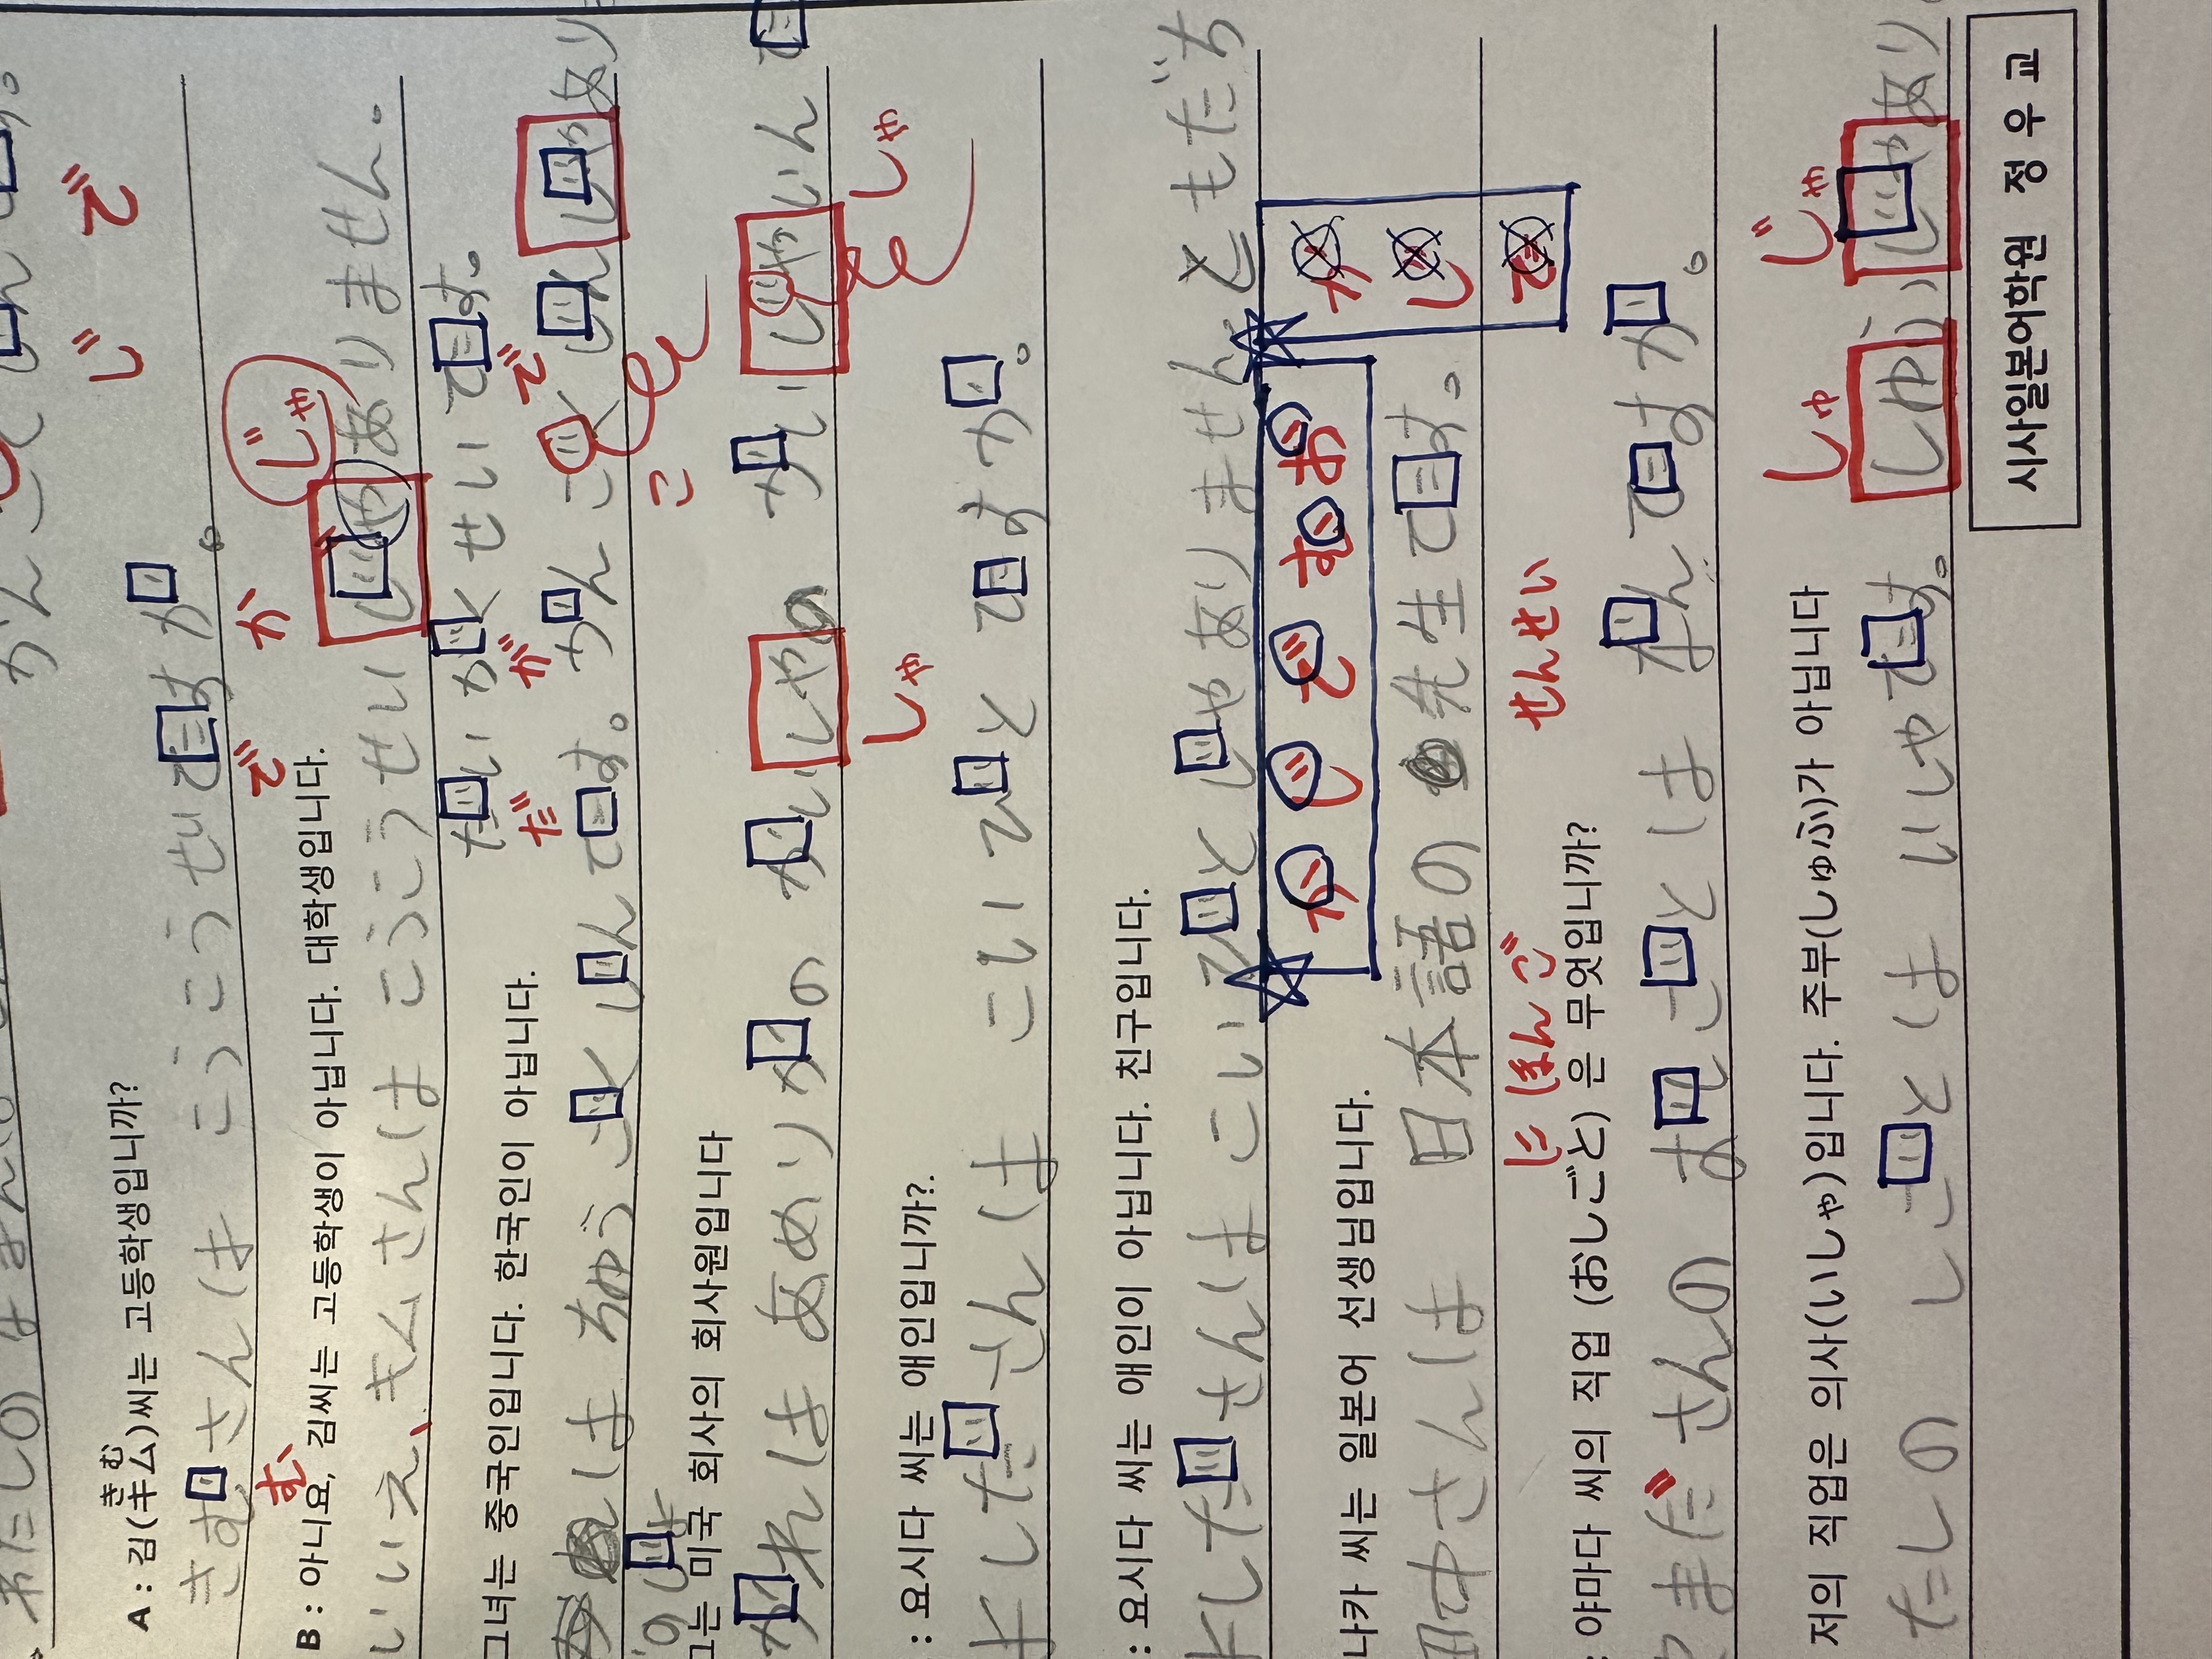 じ で
A : 김(キム)씨는 고등학생입니까?
きむ
きむさんは こうこうせいですか。
む、 で か じゃ
B : 아니요, 김씨는 고등학생이 아닙니다. 대학생입니다.
いいえ、キムさんは こうこうせい じゃありません。
だいがくせいです。
だ が で
그녀는 중국인입니다. 한국인이 아닙니다.
は ちゅうごくじんです。かんこくじんじゃあり
こ
그는 미국 회사의 회사원입니다
かれは あめりかの かいしゃの かいしゃいんで
しゃ しゃ
: 요시다 씨는 애인입니까?.
よしださんは こいびとですか。
: 요시다 씨는 애인이 아닙니다. 친구입니다.
よしださんは こいびとじゃありません ともだち
か じ で す お
か し て
나카 씨는 일본어 선생님입니다.
田中さんは 日本語の 先生です。
にほんご せんせい
: 야마다 씨의 직업 (おしごと) 은 무엇입니까?
やまださんの おしごとは なんですか。
저의 직업은 의사(いしゃ)입니다. 주부(しゅふ)가 아닙니다
しゅ じゃ
たしの しごとは いしゃです。 しゅふじゃあり
시사일본어학원 정 우 교